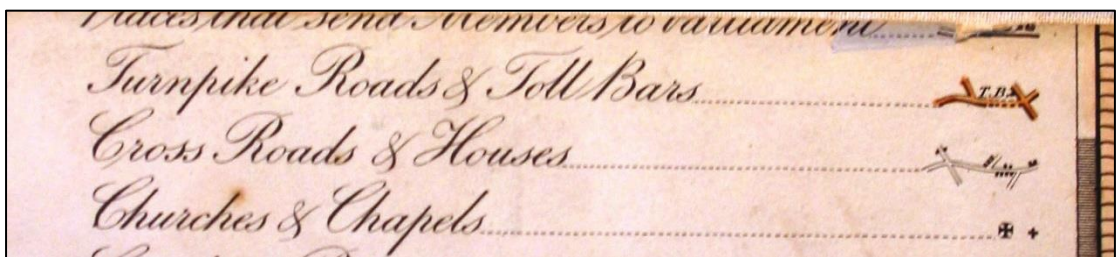 Places that send Members to Parliament
Turnpike Roads & Toll Bars T.B.
Cross Roads & Houses
Churches & Chapels